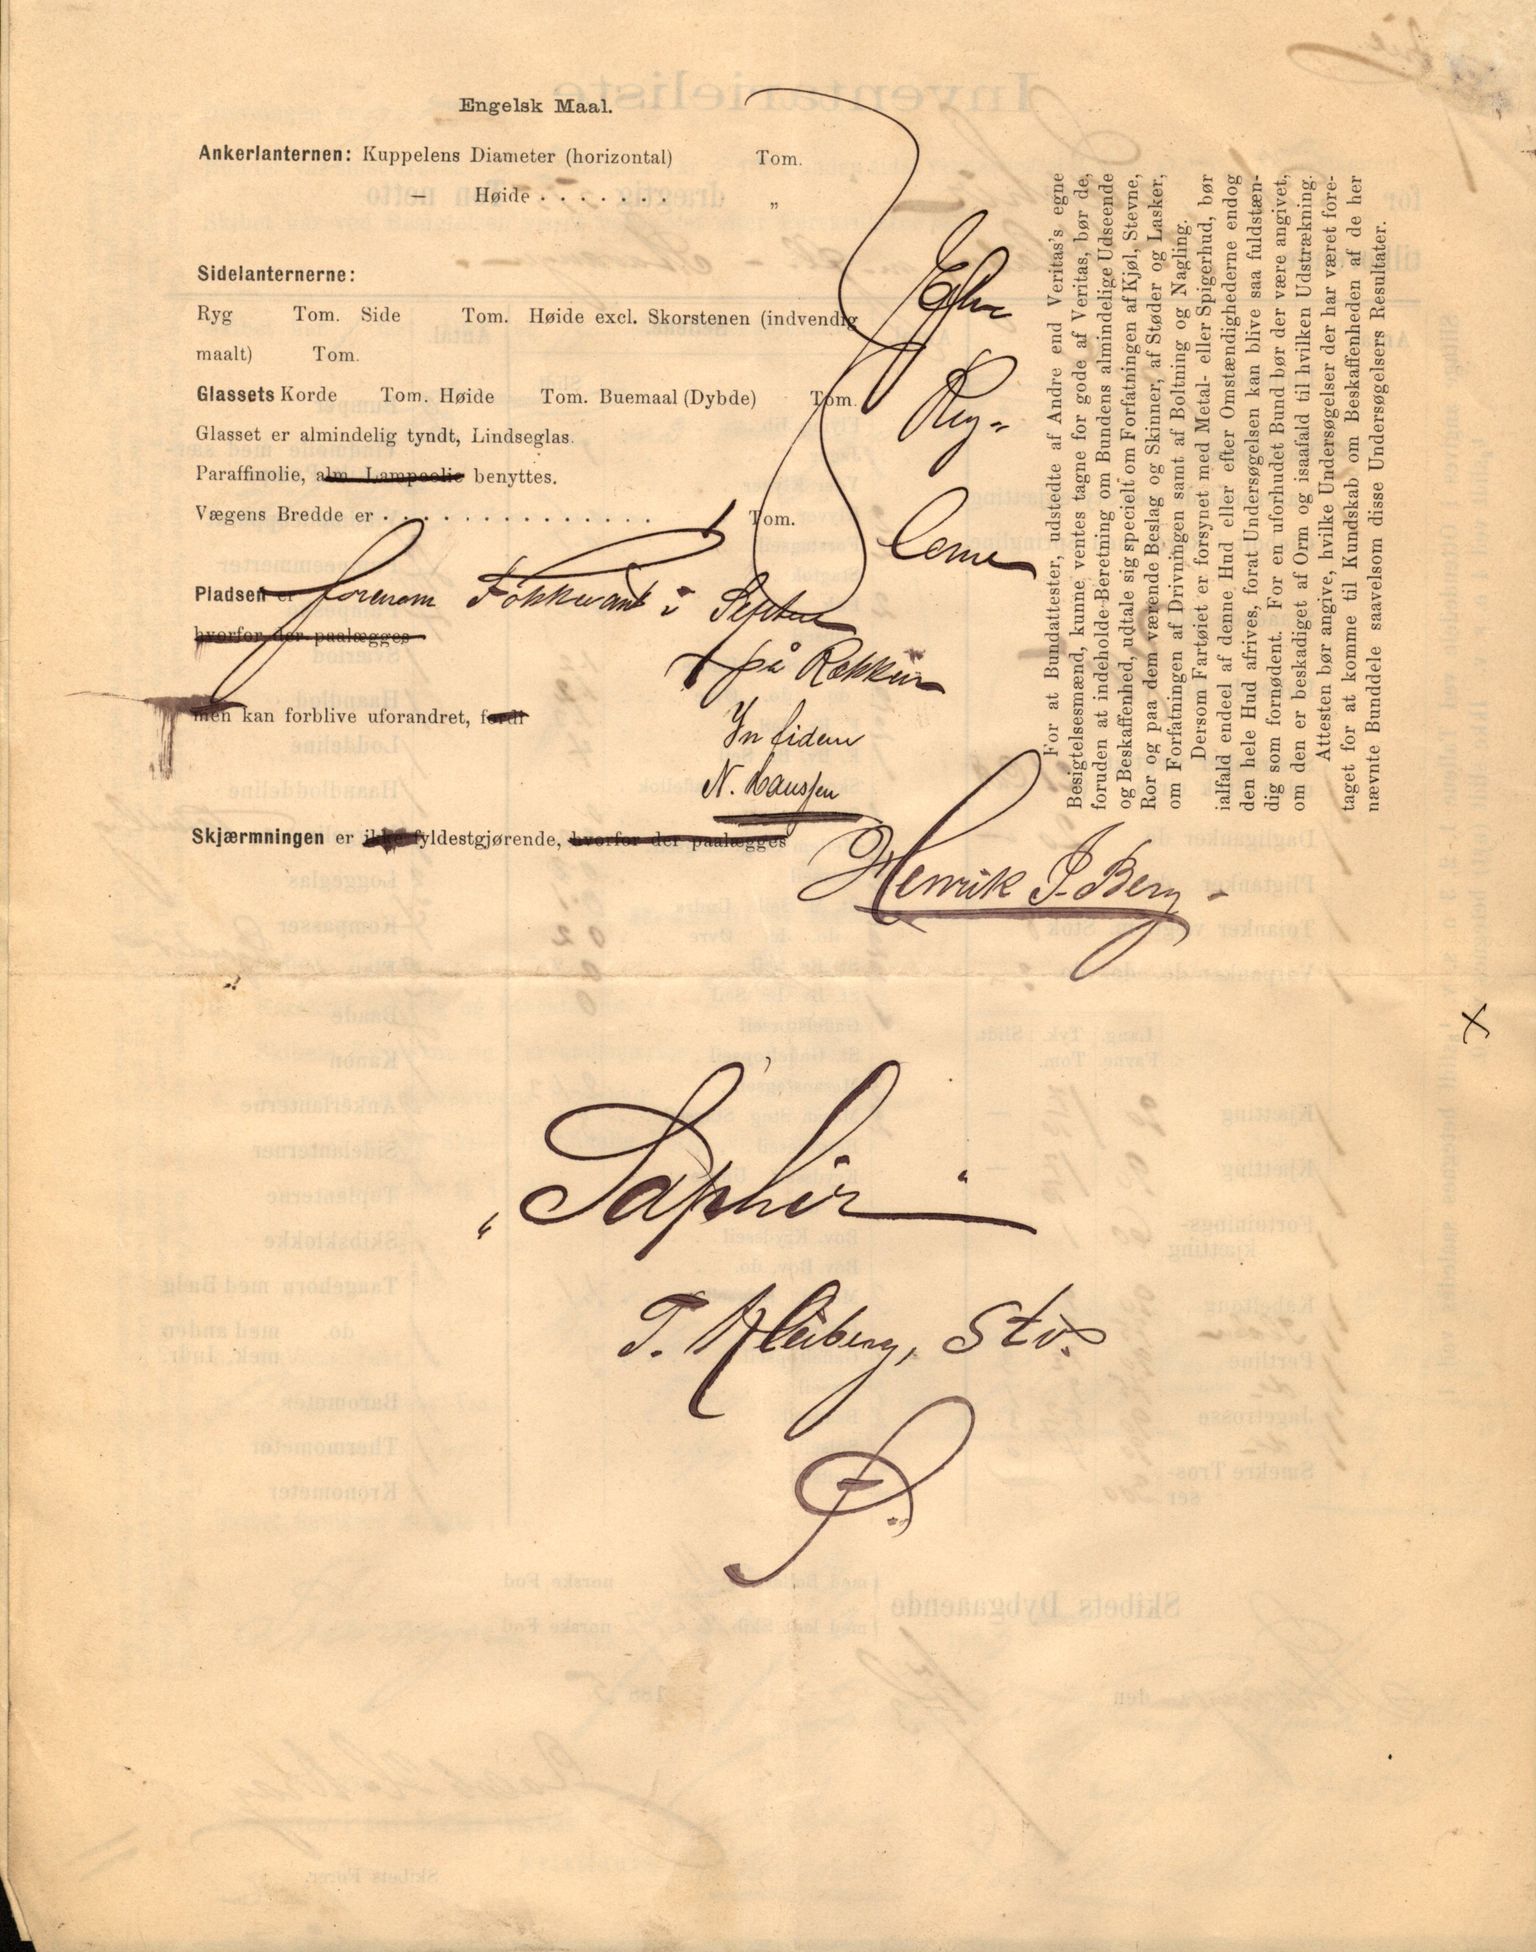 Engelsk Maal.
Ankerlanternen: Kuppelens Diameter (horizontal) Tom.
— Høide . . . . . . . „
Sidelanternerne:
Ryg Tom. Side Tom. Høide excl. Skorstenen (indvendig
maalt) Tom.
Glassets Korde Tom. Høide Tom. Buemaal (Dybde) Tom.
Glasset er almindelig tyndt, Lindseglas.
Paraffinolie, alm. Lampeolie benyttes.
Vægens Bredde er . . . . . . . . . . . . . . . Tom.
Efter
Reg-
lerne
Pladsen er forenom Fokkevant i
hvorfor der paalægges
på Rækken
men kan forblive uforandret, fordi
In fidem
N. Hanssen
Skjærmningen er ikke fyldestgjørende, hvorfor der paalægges
Henrik J. Berg -
For at Bundattester, udstedte af Andre end Veritas's egne
Besigtelsesmænd, kunne ventes tagne for gode af Veritas, bør de,
foruden at indeholde Beretning om Bundens almindelige Udseende
og Beskaffenhed, udtale sig specielt om Forfatningen af Kjøl, Stevne,
Ror og paa dem værende Beslag og Skinner, af Støder og Lasker,
om Forfatningen af Drivningen samt af Boltning og Nagling.
Dersom Fartøiet er forsynet med Metal- eller Spigerhud, bør
ialfald endeel af denne Hud eller efter Omstændighederne endog
den hele Hud afrives, forat Undersøgelsen kan blive saa fuldstæn-
dig som fornødent. For en uforhudet Bund bør der være angivet,
om den er beskadiget af Orm og isaafald til hvilken Udstrækning.
Attesten bør angive, hvilke Undersøgelser der har været fore-
taget for at komme til Kundskab om Beskaffenheden af de her
nævnte Bunddele saavelsom disse Undersøgelsers Resultater.
„Saphir"
T. Kleiberg, Stv.